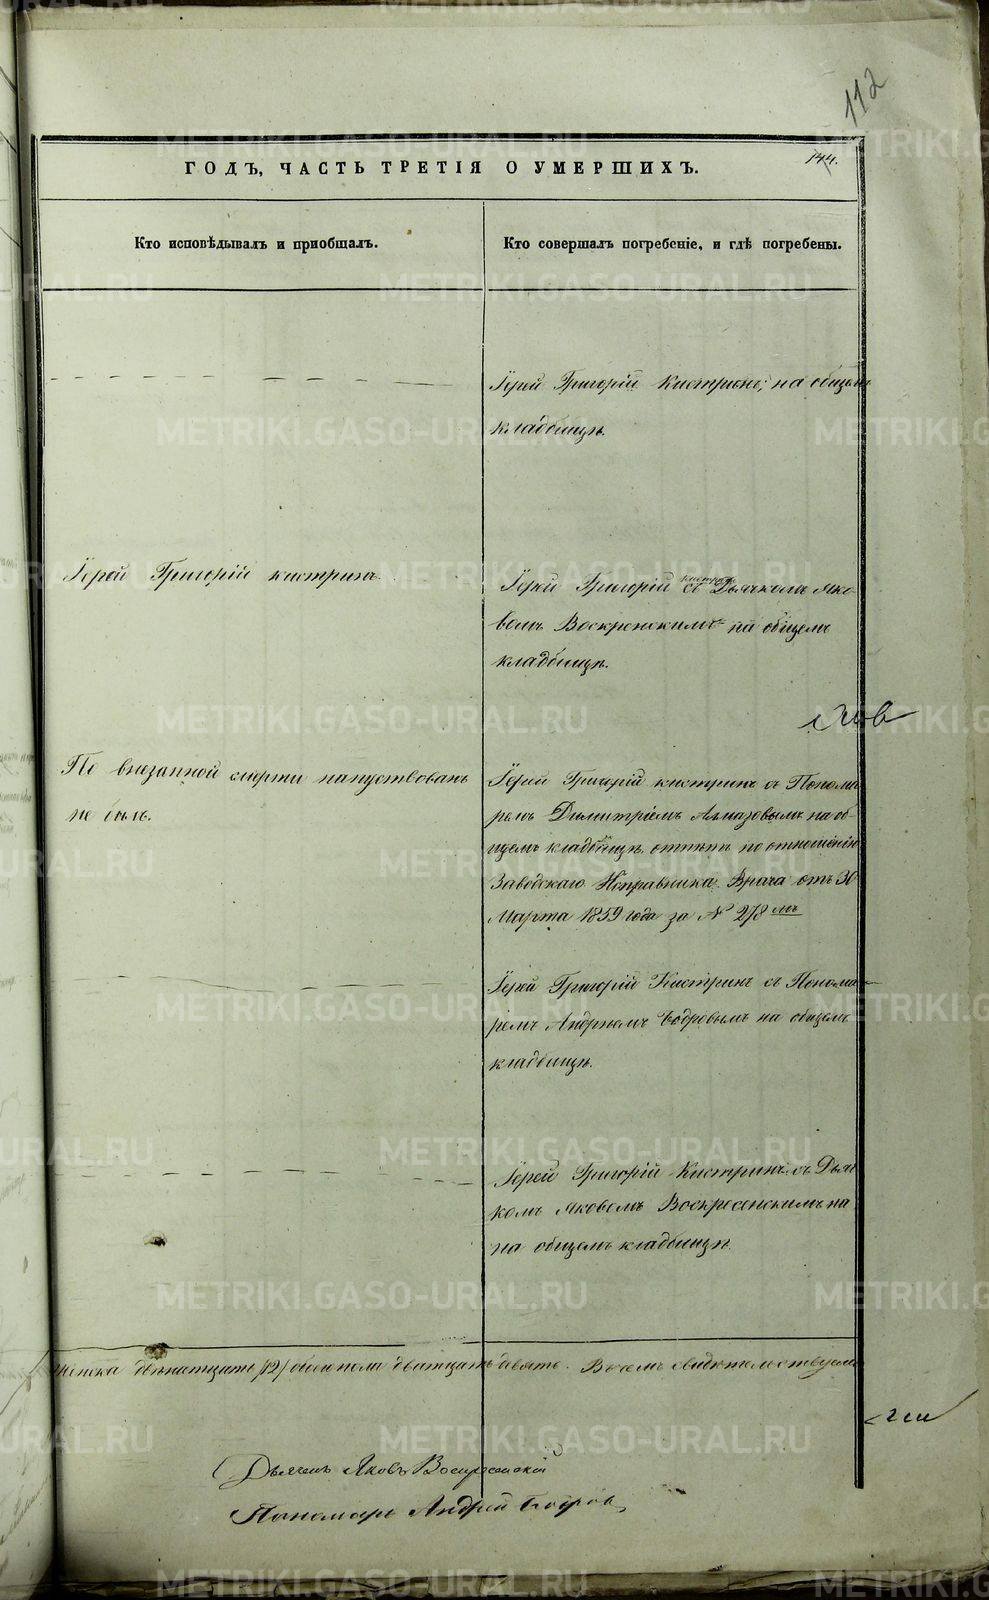 112
144.
ГОДЪ, ЧАСТЬ ТРЕТІЯ О УМЕРШИХЪ.
Кто исповѣдывалъ и пріобщалъ.
Кто совершалъ погребеніе, и гдѣ погребены.
Іерей Григорій Кистринъ; на общемъ
кладбищѣ.
Іерей Григорій Кистринъ
Кистринъ
Іерей Григорій съ Дьячкомъ Яко-
вомъ Воскресенскимъ на общемъ
кладбищѣ.
По внезапной смерти напутствованъ
не былъ.
Іерей Григорій Кистринъ съ Понома-
ремъ Димитріемъ Алмазовымъ на об-
щемъ кладбищѣ, отпѣтъ по отношенію
Заводскаго Исправника Врача отъ 30
Марта 1859 года за № 278 мъ
Іерей Григорій Кистринъ съ Понома-
ремъ Андреемъ Бодровымъ на общемъ
кладбищѣ.
Іерей Григорій Кистринъ съ Дьяч-
комъ Яковомъ Воскресенскимъ на
на общемъ кладбищѣ.
женска двѣнатцать /12/ обоего пола дватцать девять. В чемъ свидѣтельствуемъ
Дьячекъ Яковъ Воскресенскій
Пономарь Андрей Бодровъ
METRIKI.GASO-URAL.RU